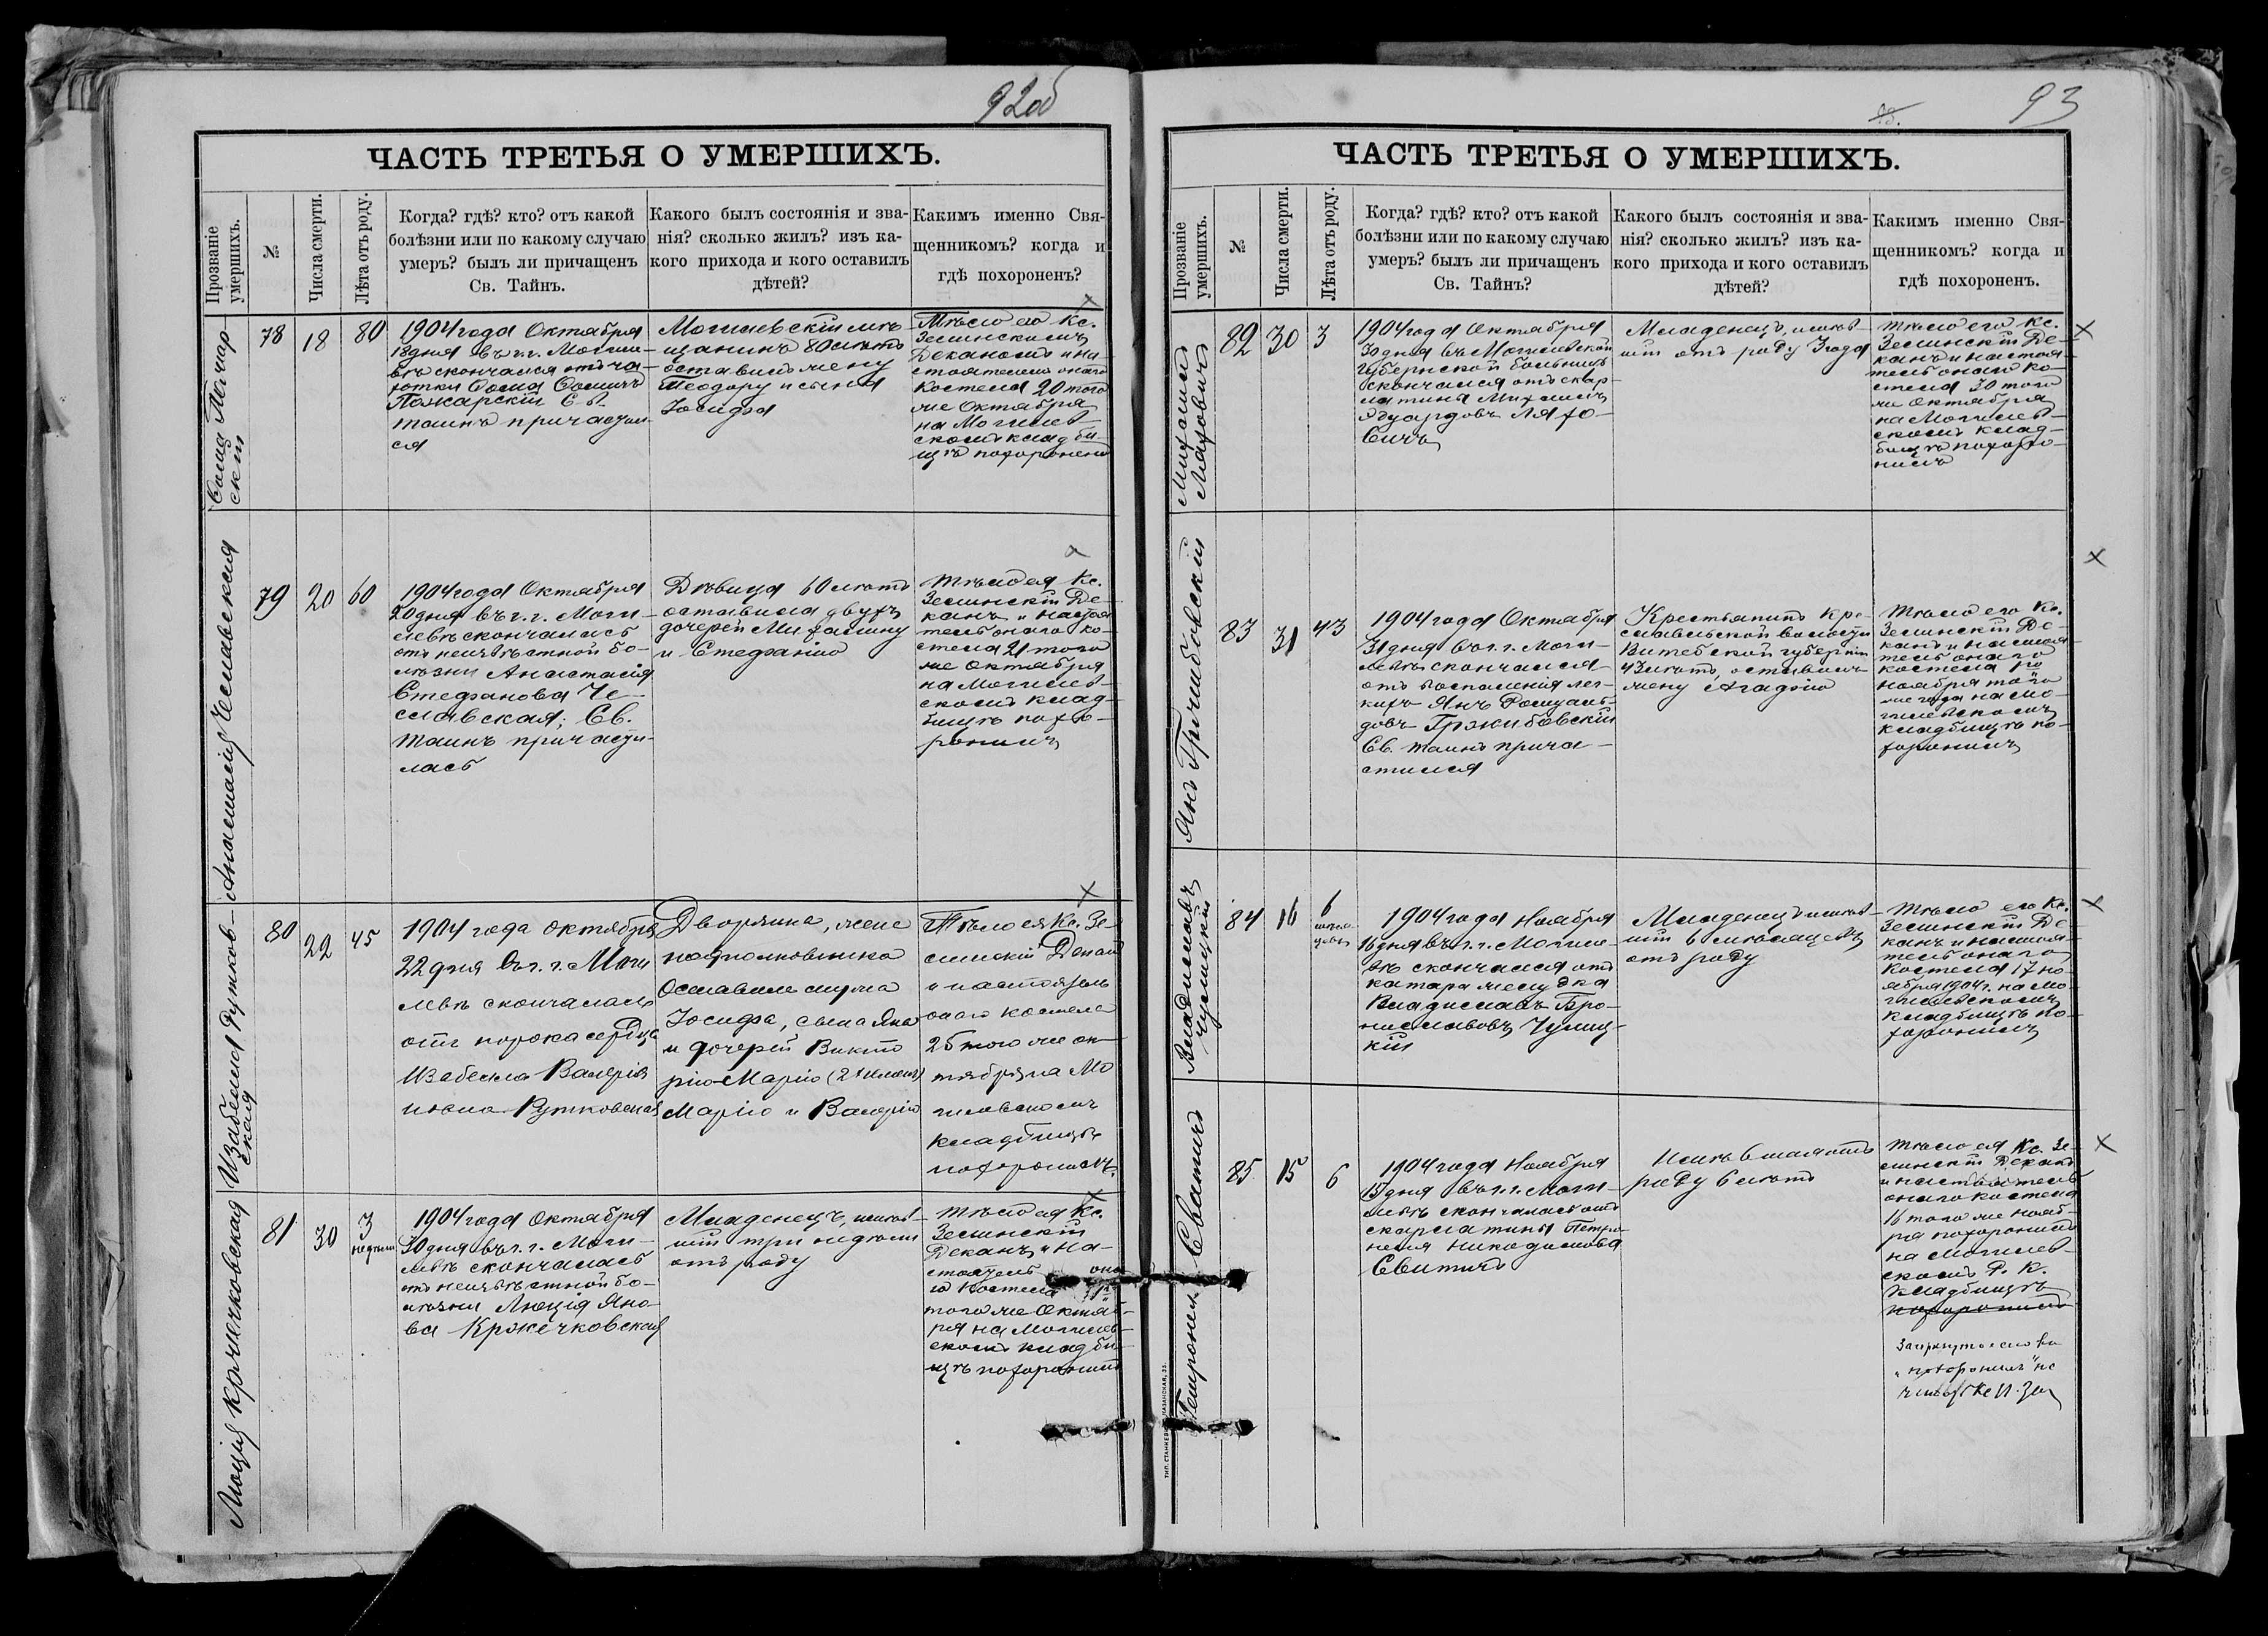 92об
ЧАСТЬ ТРЕТЬЯ О УМЕРШИХЪ.
Прозваніе умершихъ.
№
Числа смерти.
Лѣта отъ роду.
Когда? гдѣ? кто? отъ какой
болѣзни или по какому случаю
умеръ? былъ ли причащенъ
Св. Тайнъ.
Какого былъ состоянія и зва-
нія? сколько жилъ? изъ ка-
кого прихода и кого оставилъ
дѣтей?
Какимъ именно Свя-
щенникомъ? когда и
гдѣ похороненъ?
Пожар
скій
78
18
80
1904 года Октября
18 дня въ г. г. Могил-
евѣ скончался отъ ча-
хотки
Пожарскій Св.
Таинъ причастил-
ся
Могилевскій мѣ-
щанинъ 80 лѣтъ
оставилъ жену
Теодору и сына
Іосифа
Тѣло его Кс.
Зелинскимъ
Деканомъ и на-
стоятелемъ онаго
Костела 20 того
же Октября
на Могилев-
скомъ кладби-
щѣ похоронено
Анастасія Чеславская
79
20
60
1904 года Октября
20 дня въ г. г. Моги-
левѣ скончалась
отъ неизвѣстной бо-
лѣзни Анастасія
Стефанова Че-
славская; Св.
Таинъ причасти-
лась
Дѣвица 60 лѣтъ
оставила двухъ
дочерей Михалину
и Стефанію
Тѣло ея Кс.
Зелинскій Де-
канъ и настоя
тель онаго ко-
стела 21 того
же Октября
на Могилев-
скомъ клад-
бищѣ похо-
ронилъ
Изабелла Рутков-
ская
80
22
45
1904 года октября
22 дня въ г. г. Моги
левѣ скончалась
отъ порока сердца
Изабелла Валерія
новна Рутковская
Дворянка, жена
подполковника
Оставила мужа
Іосифа, сына Яна
и дочерей Викто
рію-Марію (21 лѣтъ)
Марію и Валерію
Тѣло ея Кс. Зе-
линскій Деканъ
и настоятель
онаго костела
25 того же ок-
тября на Мо
гилевскомъ
кладбищѣ
похоронилъ.
Люція Кржечковская
81
30
3
недѣли
1904 года Октября
30 дня въ г. г. Моги-
левѣ скончалась
отъ неизвѣстной бо-
лѣзни Люція Яно-
ва Кржечковская
Младенецъ, имѣв-
шій три недѣли
отъ роду
Тѣло ея Кс.
Зелинскій
Деканъ и На-
стоятель она
го Костела 31
того же Октяб-
ря на Могилев-
скомъ кладби-
щѣ похоронилъ
93
ЧАСТЬ ТРЕТЬЯ О УМЕРШИХЪ.
Прозваніе умершихъ.
№
Числа смерти.
Лѣта отъ роду.
Когда? гдѣ? кто? отъ какой
болѣзни или по какому случаю
умеръ? былъ ли причащенъ
Св. Тайнъ?
Какого былъ состоянія и зва-
нія? сколько жилъ? изъ ка-
кого прихода и кого оставилъ
дѣтей?
Какимъ именно Свя-
щенникомъ? когда и
гдѣ похороненъ.
Михаилъ
Ляховичъ
82
30
3
1904 года Октября
30 дня въ Могилевской
губернской больницѣ
скончался отъ скар-
латины Михаилъ
Эдуардовъ Ляхо-
вичъ
Младенецъ, имѣв-
шій отъ роду 3 года
Тѣло его Кс.
Зелинскій Де-
канъ и настоя-
тель онаго ко-
стела 30 того
же Октября
на Могилев-
скомъ клад-
бищѣ похоро-
нилъ
Янъ Гржибовскій
83
31
43
1904 года Октября
31 дня въ г. г. Моги-
левѣ скончался
отъ воспаленія лег-
кихъ Янъ Ромуаль-
довъ Гржибовскій
Св. таинъ прича-
стился
Крестьянинъ Кре-
славльской волости
Витебской губерніи
43 лѣтъ, оставилъ
жену Агафію
Тѣло его Кс.
Зелинскій Де-
канъ и настоя-
тель онаго
костела 1го
ноября того
же года на Мо-
гилевскомъ
кладбищѣ по-
хоронилъ
Владиславъ
Чулицкій
84
16
6
мѣся
цевъ
1904 года Ноября
16 дня въ г. г. Могил-
евѣ скончался отъ
катара желудка
Владиславъ Бро-
ниславовъ Чулиц-
кій
Младенецъ имѣв-
шій 6 мѣсяцевъ
отъ роду
Тѣло его Кс.
Зелинскій Де-
канъ и настоя-
тель онаго
Костела 17 но-
ября 1904 г. на Мо-
гилевскомъ
кладбищѣ по-
хоронилъ
Петронел. Сватичъ
85
15
6
1904 года Ноября
15 дня въ г. г. Моги-
левѣ скончалась отъ
скарлатины Петро-
нелія Никодимова
Свитичъ
Имѣвшая отъ
роду 6 лѣтъ
Тѣло ея Кс. Зе-
линскій Деканъ
и настоятель
онаго костела
16 того же нояб-
ря похоронилъ
на Могилев-
скомъ Р. К.
кладбищѣ
похоронилъ
Зачеркнутое слово
„похоронилъ" не
читать Кс. И. Зел
ТИП. СТАНКЕВИЧ КАЗАНСКАЯ, 33.